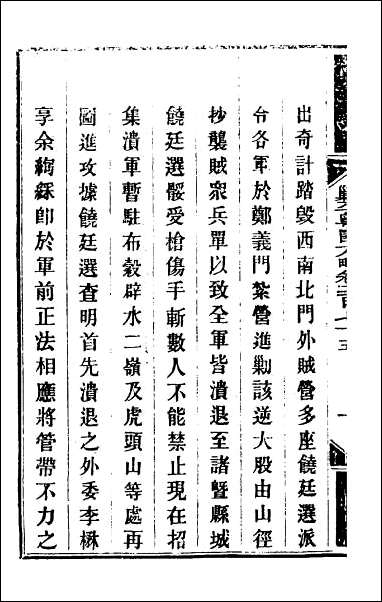 出奇計踏毀西南北門外賊營多座饒廷選派
台各軍於鄭義門紮營進勦該逆大股由山徑
抄襲賊衆兵單以致全軍皆潰退至諸暨縣城
饒廷選骽受槍傷手斬數人不能禁止現在招
集潰軍暫駐布穀辟水二嶺及虎頭山等處再
圖進攻據饒廷選查明首先潰退之外委李楙
享余綯綵卽於軍前正法相應將管帶不力之